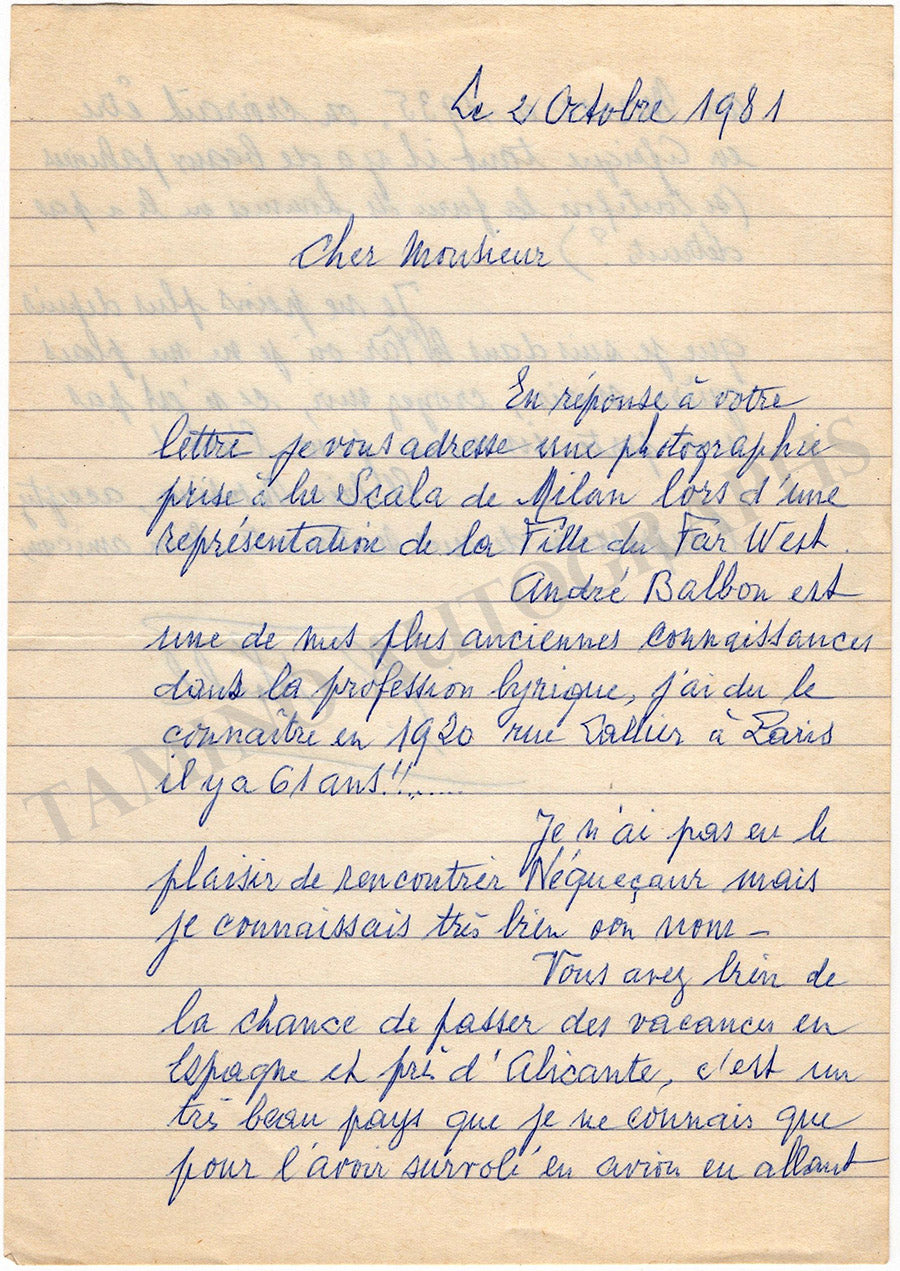 Le 2 Octobre 1981
Cher Monsieur
En réponse à votre
lettre je vous adresse une photographie
prise à la Scala de Milan lors d'une
représentation de la Fille du Far West.
André Balbon est
une de mes plus anciennes connaissances
dans la profession lyrique, j'ai du le
connaître en 1920 rue à Paris
il y a 61 ans!!......
Je n'ai pas eu le
plaisir de rencontrer mais
je connaissais très bien son nom -
Vous avez bien de
la chance de passer des vacances en
Espagne et près d'Alicante, c'est un
très beau pays que je ne connais que
pour l'avoir survolé en avion en allant
TAMINO AUTOGRAPHS